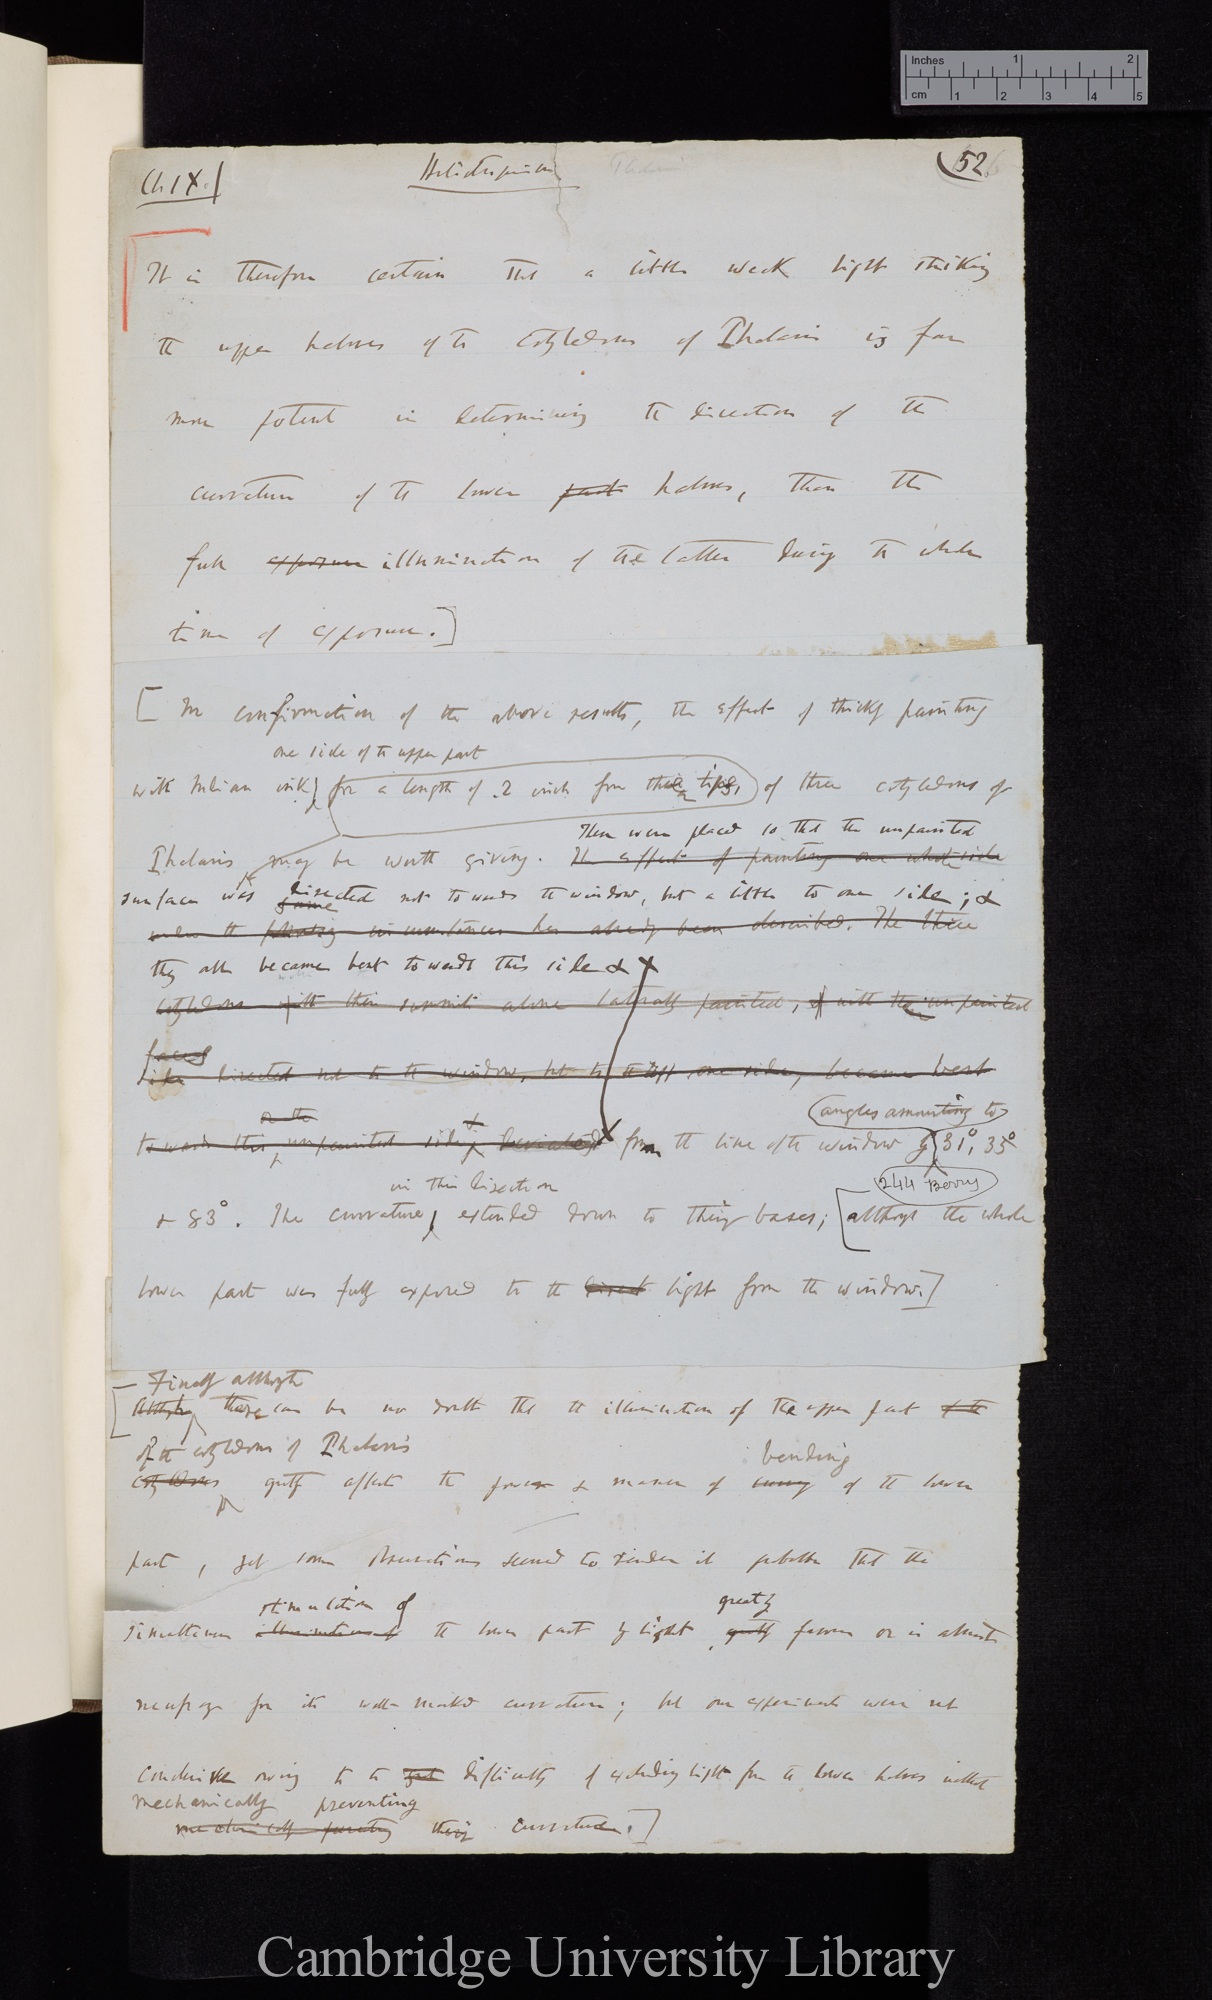 Inches 1 2
cm 1 2 3 4 5
Ch IX.
Heliotropism
52
It is therefore certain that a little weak light striking
the upper halves of the cotyledons of Phalaris is far
more potent in determining the direction of the
curvature of the lower part halves, than the
full exposure illumination of the latter during the whole
time of exposure.]
[In confirmation of the above results, the effect of thickly painting
one side of the upper part
with Indian ink for a length of .2 inch from their tips, of three cotyledons of
These were placed so that the unpainted
Phalaris may be worth giving. The effect of painting one whole side
surface was directed not towards the window, but a little to one side; &
has already been described. The three
they all became bent towards this side &
cotyledons with their summits alone laterally painted, & with the unpainted
faces
sides directed not to the window, but to the one side, became bent
or the
towards this unpainted side & deviated from the line of the window by 31°, 35°
angles amounting to
244 Berry
in this direction
& 83°. The curvature extended down to their bases; although the whole
lower part was fully exposed to the direct light from the window.]
Finally although
Although there can be no doubt that the illumination of the upper part of the
of the cotyledons of Phalaris
bending
cotyledons greatly affects the power & manner of of the lower
part, yet some observations seemed to render it probable that the
stimulation of
greatly
simultaneous illumination of the lower part by light greatly favours or is almost
necessary for its well-marked curvature; but our experiments were not
conclusive owing to the great difficulty of excluding light from the lower halves without
mechanically preventing
mechanically preventing their curvature.]
Cambridge University Library